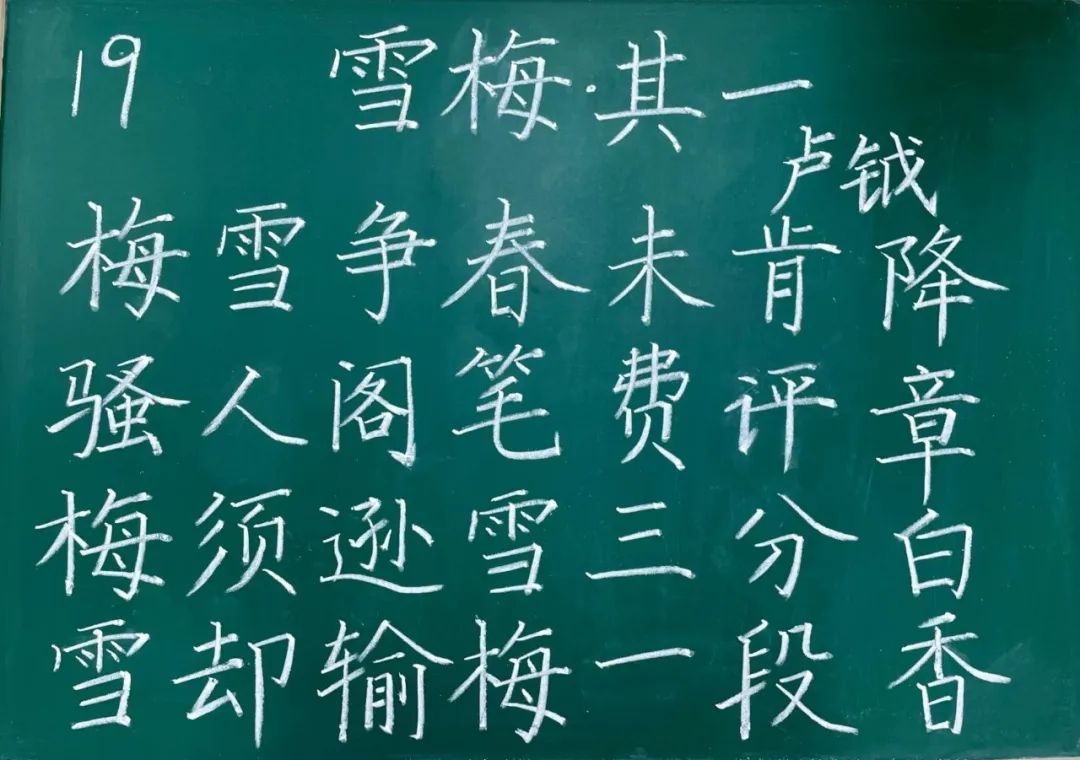 19 雪梅·其一
卢钺
梅雪争春未肯降
骚人阁笔费评章
梅须逊雪三分白
雪却输梅一段香